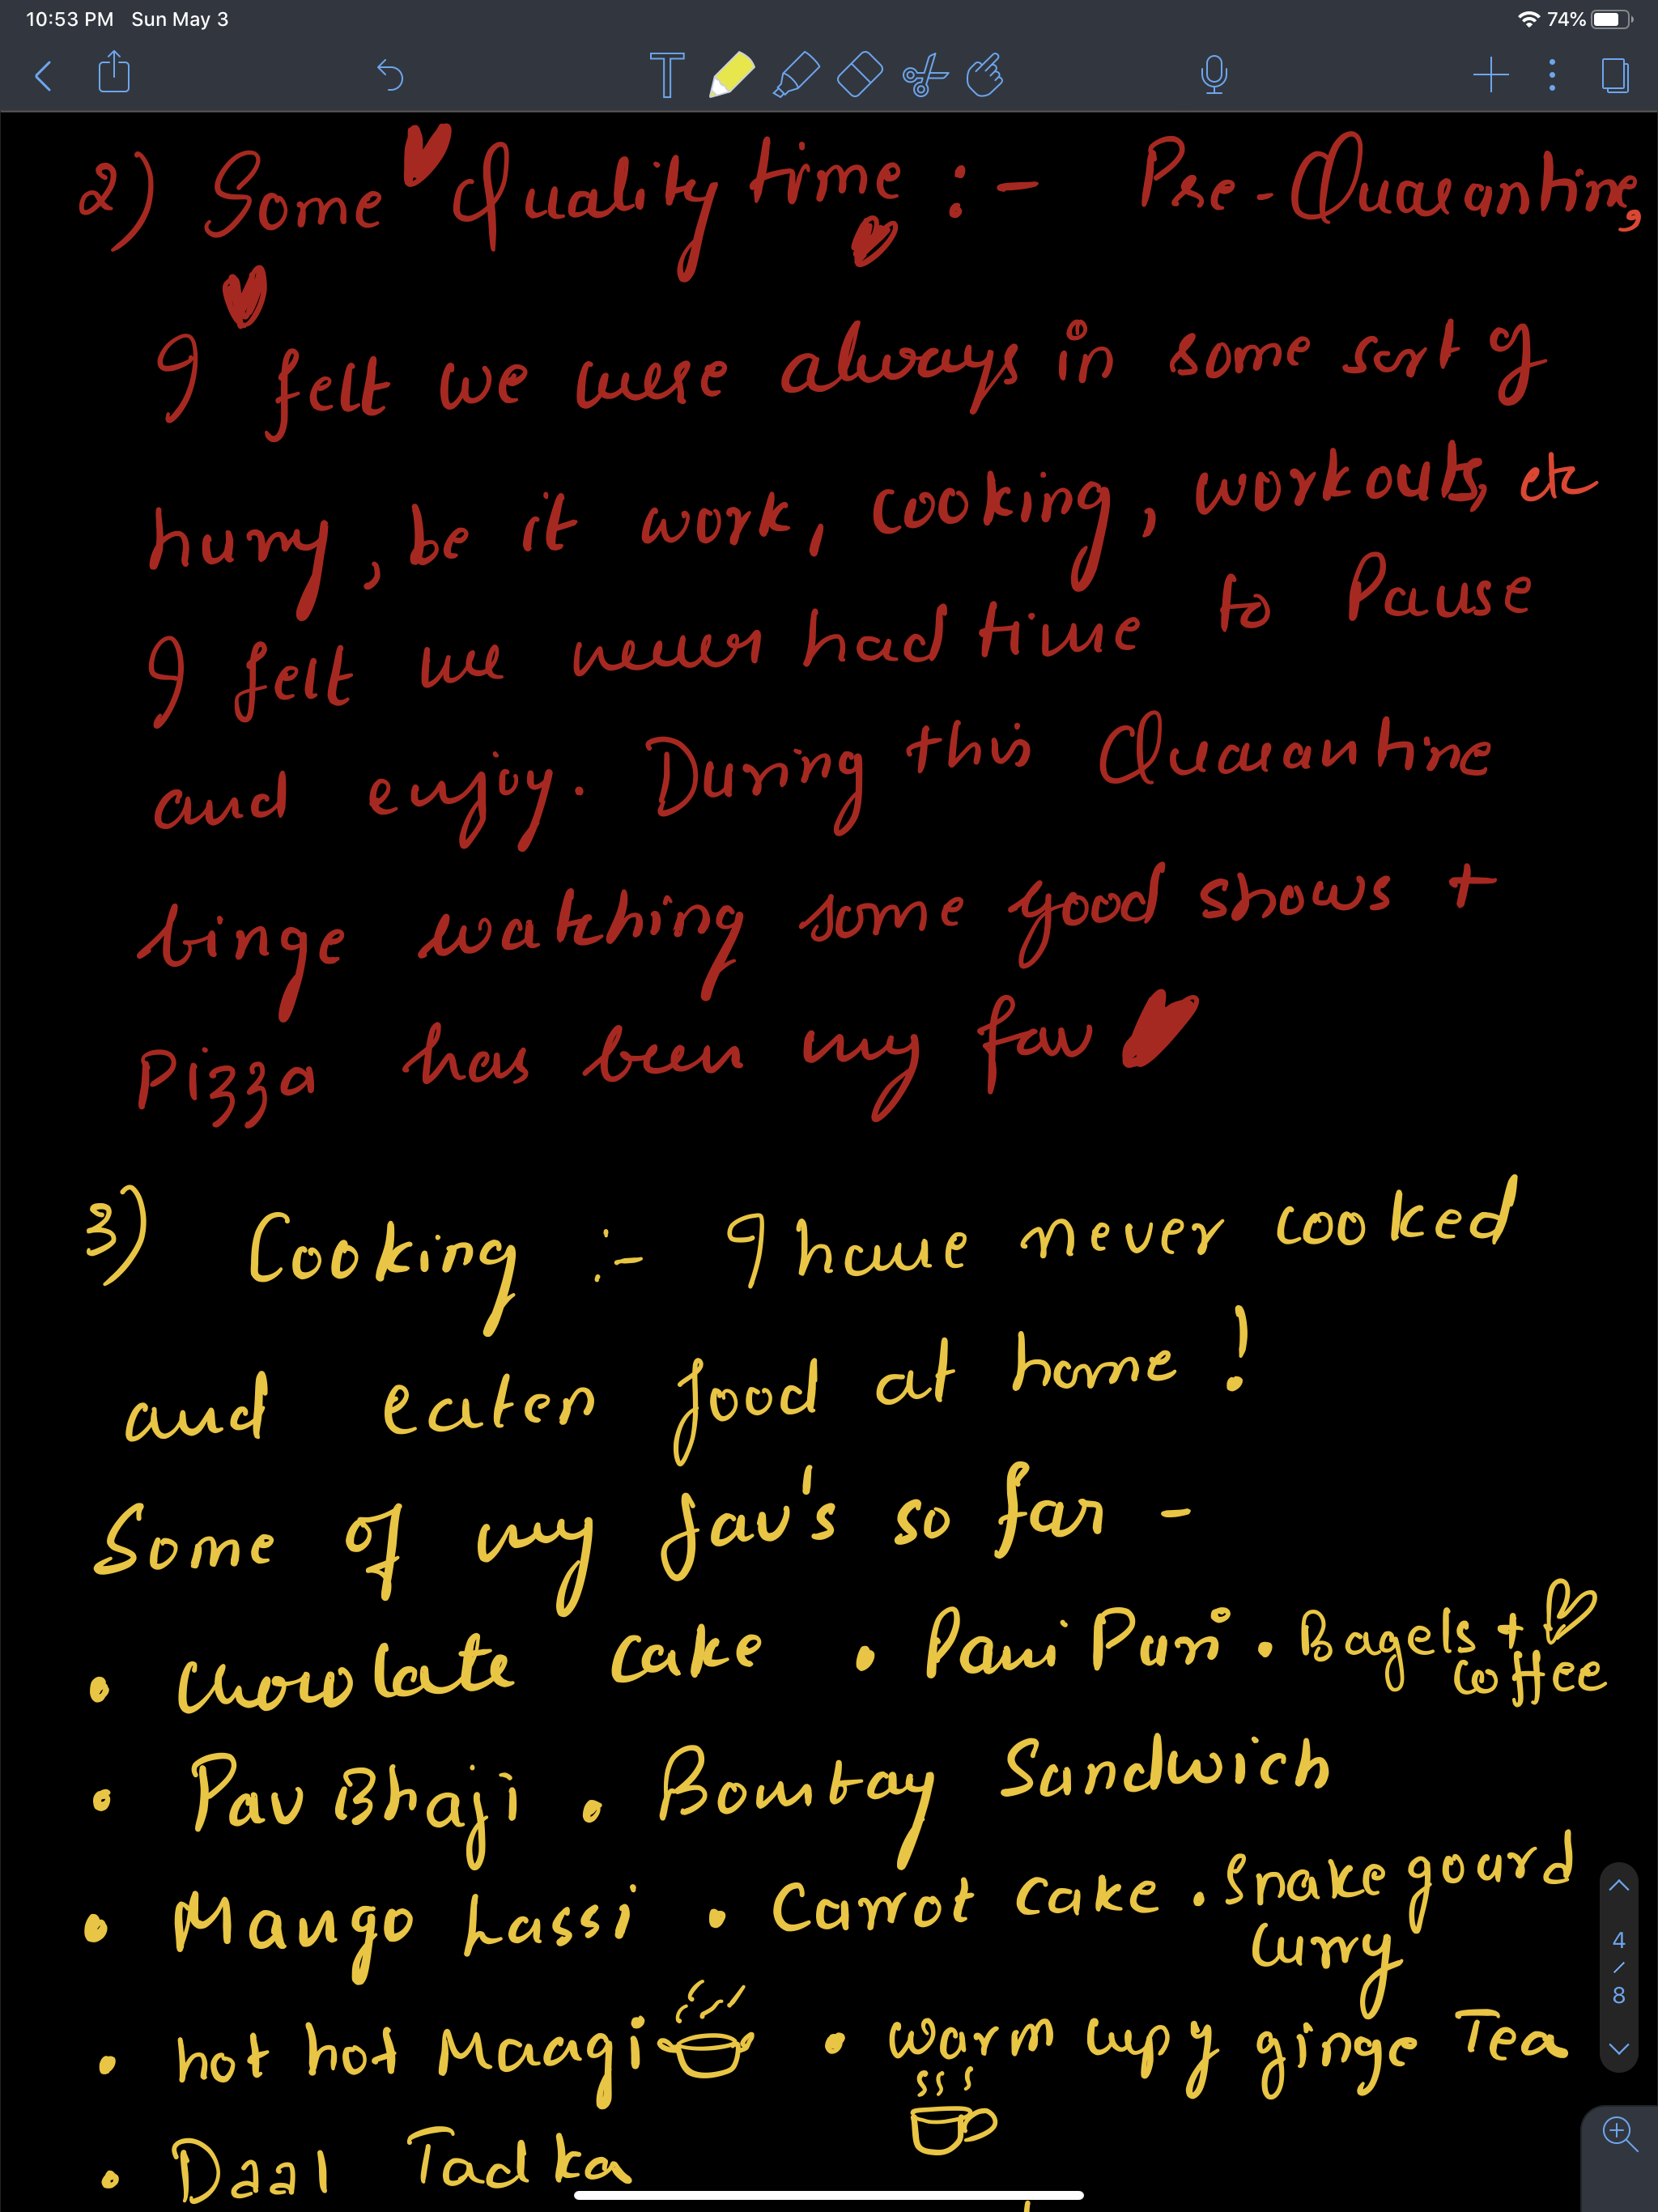 10:53 PM Sun May 3 74%
2) Some Quality time :- Pre-Quarantine,
I felt we were always in some sort of
hurry, be it work, cooking, workouts, etc
I felt we never had time to Pause
and enjoy. During this Quarantine
binge watching some good shows +
Pizza has been my fav
3) Cooking :- I have never cooked
and eaten food at home!
Some of my fav's so far -
• chocolate cake • Pani Puri • Bagels + coffee
• Pav Bhaji • Bombay Sandwich
• Mango Lassi • Carrot cake • Snake gourd curry
• hot hot Maagi • warm cup y ginge Tea
• Daal Tadka
4
/
8